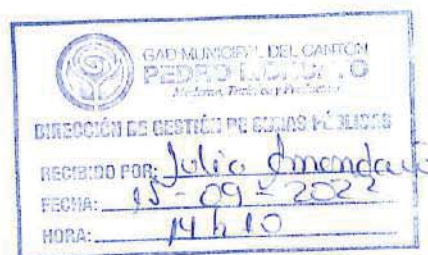 GAD MUNICIPAL DEL CANTÓN
PEDRO
DIRECCIÓN DE GESTIÓN DE OBRAS PÚBLICAS
RECIBIDO POR: Julio
FECHA: 15-09-2022
HORA: 14h10